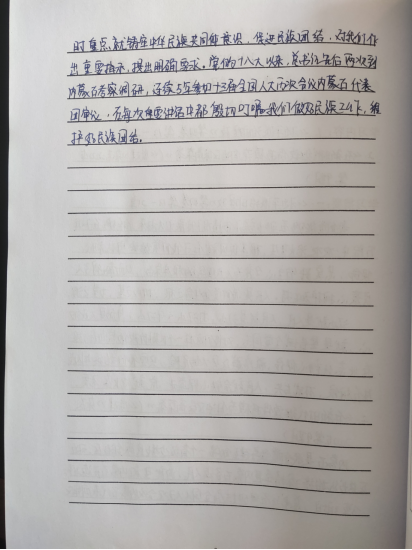 时重点就铸牢中华民族共同体意识、促进民族团结,对我们作
出重要指示、提出明确要求。党的十八大以来,总书记先后两次到
内蒙古考察调研,连续5年参加十三届全国人大历次会议内蒙古代表
团审议,在每次重要讲话中都殷切叮嘱我们做好民族工作,维
护好民族团结。